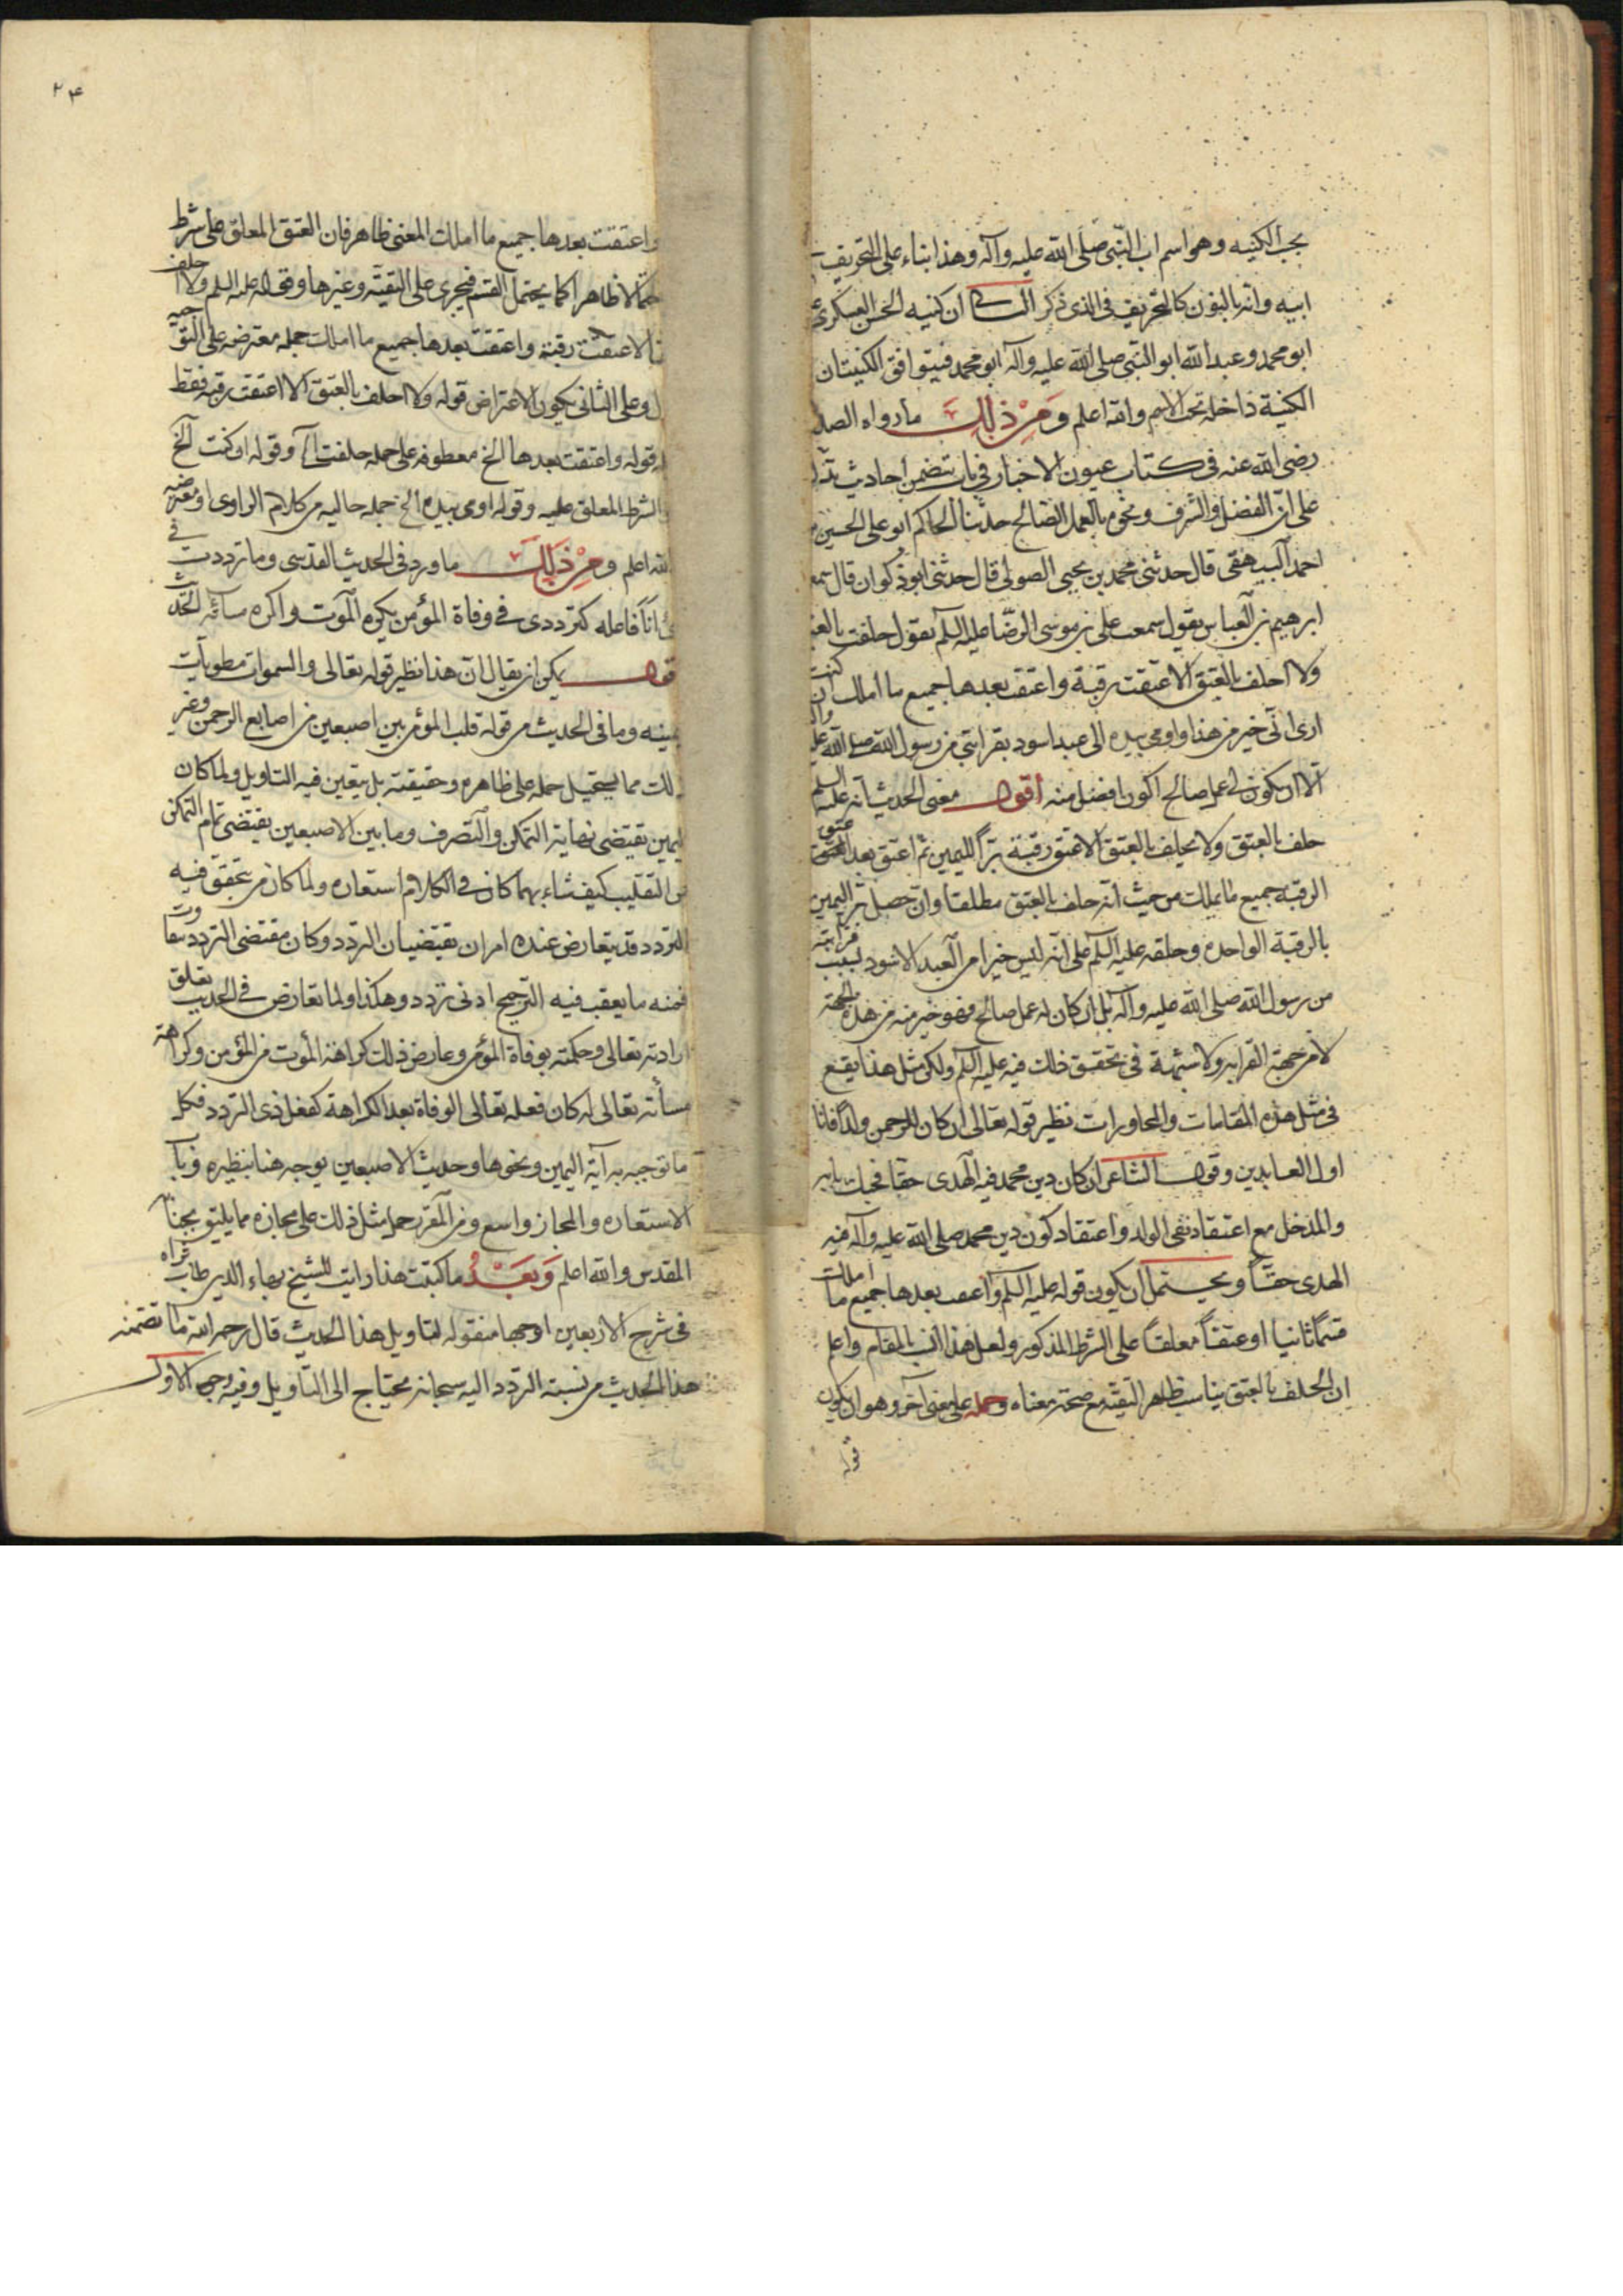 بحب الكنيه وهو اسم اب النبي صلى الله عليه وآله وهذا بناء على التحريف
ابيه وانه بالنون كالتحريف في الذي ذكر ان كنيه الحسن العسكري
ابو محمد وعبد الله ابو النبي صلى الله عليه وآله ابو محمد فيتوافق الكنيتان
الكنية داخله تحت الاسم والله اعلم ومن ذلك ما رواه الصد
رضي الله عنه في كتاب عيون الاخبار في باب يتضمن أحاديث تدل
على ان الفضل والشرف ونحوه بالعمل الصالح حدثنا الحاكم ابو علي الحسين
احمد البيهقي قال حدثني محمد بن يحيى الصولي قال حدثني ابو ذكوان قال سمع
ابرهيم بن العباس يقول سمعت علي بن موسى الرضا عليه السلم يقول حلفت بالعتق
ولا احلف بالعتق الا اعتقت رقبة واعتقت بعدها جميع ما املك ان كنت
ارى اني خير من هذا واومى بيده الى عبد اسود بقرابتي من رسول الله صلى الله عليه
الا ان يكون لي عمل صالح اكون افضل منه أقول معنى الحديث انه عليه السلم
حلف بالعتق ولا يحلف بالعتق الا عتق رقبة برا لليمين ثم اعتق بعد عتق
الرقبة جميع ما يملك من حيث انه حلف بالعتق مطلقا وان حصل بر اليمين
بالرقبة الواحده وحلفه عليه السلم على انه ليس خيرا من العبد الاسود بسبب قرابته
من رسول الله صلى الله عليه وآله بل ان كان له عمل صالح فهو خير منه من هذه الجهة
لا من جهة القرابه ولا شبهة في تحقق ذلك فيه عليه السلم ولكن مثل هذا يقع
في مثل هذه المقامات والمحاورات نظير قوله تعالى ان كان للرحمن ولد فانا
اول العابدين وقول الشاعر ان كان دين محمد فيه الهدى حقا فحبك بابه
والمدخل مع اعتقاد نفي الولد واعتقاد كون دين محمد صلى الله عليه وآله فيه
الهدى حقا ويحتمل ان يكون قوله عليه السلم واعتقت بعدها جميع ما املك
قسما ثانيا او عتقا معلقا على الشرط المذكور ولعل هذا انسب بالمقام واعلم
ان الحلف بالعتق يناسب ظاهر التقية مع صحة معناه وحمله على معنى آخر وهو ان يكون
قوله
۲۴
واعتقت بعدها جميع ما املك المعنى ظاهر فان العتق المعلق على شرط
الا ظاهرا كما يحتمل القسم فيجرى على التقية وغيرها وقوله عليه السلم ولا احلف
الا عتقت رقبة واعتقت بعدها جميع ما املك جمله معترضه على التوجيه
وعلى الثاني يكون الاعتراض قوله ولا احلف بالعتق الا اعتقت رقبه فقط
قوله واعتقت بعدها الخ معطوفه على جمله حلفت وقوله ان كنت الخ
الشرط المعلق عليه وقوله اومى بيده الخ جمله حاليه من كلام الراوى او معترضه
الله اعلم ومن ذلك ما ورد في الحديث القدسى وما ترددت في
انا فاعله كترددي في وفاة المؤمن يكره الموت واكره مسآئته الحديث
قول يمكن ان يقال ان هذا نظير قوله تعالى والسموات مطويات
بيمينه وما في الحديث من قوله قلب المؤمن بين اصبعين من اصابع الرحمن وغير
ذلك مما يستحيل حمله على ظاهره وحقيقته بل يتعين فيه التاويل ولما كان
اليمين تقتضى نهاية التمكن والتصرف وما بين الاصبعين يقتضى تمام التمكن
من التقليب كيف شاء بهما كان في الكلام استعاره ولما كان من يتحقق فيه
التردد قد يتعارض عنده امران يقتضيان التردد وكان مقتضى التردد يتفاوت
فمنه ما يعقب فيه الترجيح ادنى تردد وهكذا ولما تعارض في الحديث تعلق
ارادته تعالى وحكمته بوفاة المؤمن وعارض ذلك كراهة الموت من المؤمن وكراهة
مسأته تعالى له كان فعله تعالى الوفاة بعد الكراهة كفعل ذي التردد فكل
ما توجه به آية اليمين ونحوها وحديث الاصبعين يوجه هنا بنظيره وباب
الاستعاره والمجاز واسع ومن المقرر حمل مثل ذلك على مجازه مما يليق بجنابه
المقدس والله اعلم وبعد ما كتبت هذا رايت للشيخ بهاء الدين طاب ثراه
في شرح الاربعين اوجها منقوله لتاويل هذا الحديث قال رحمه الله ما تضمنه
هذا الحديث من نسبة التردد اليه سبحانه محتاج الى التأويل وفيه وجوه الاول